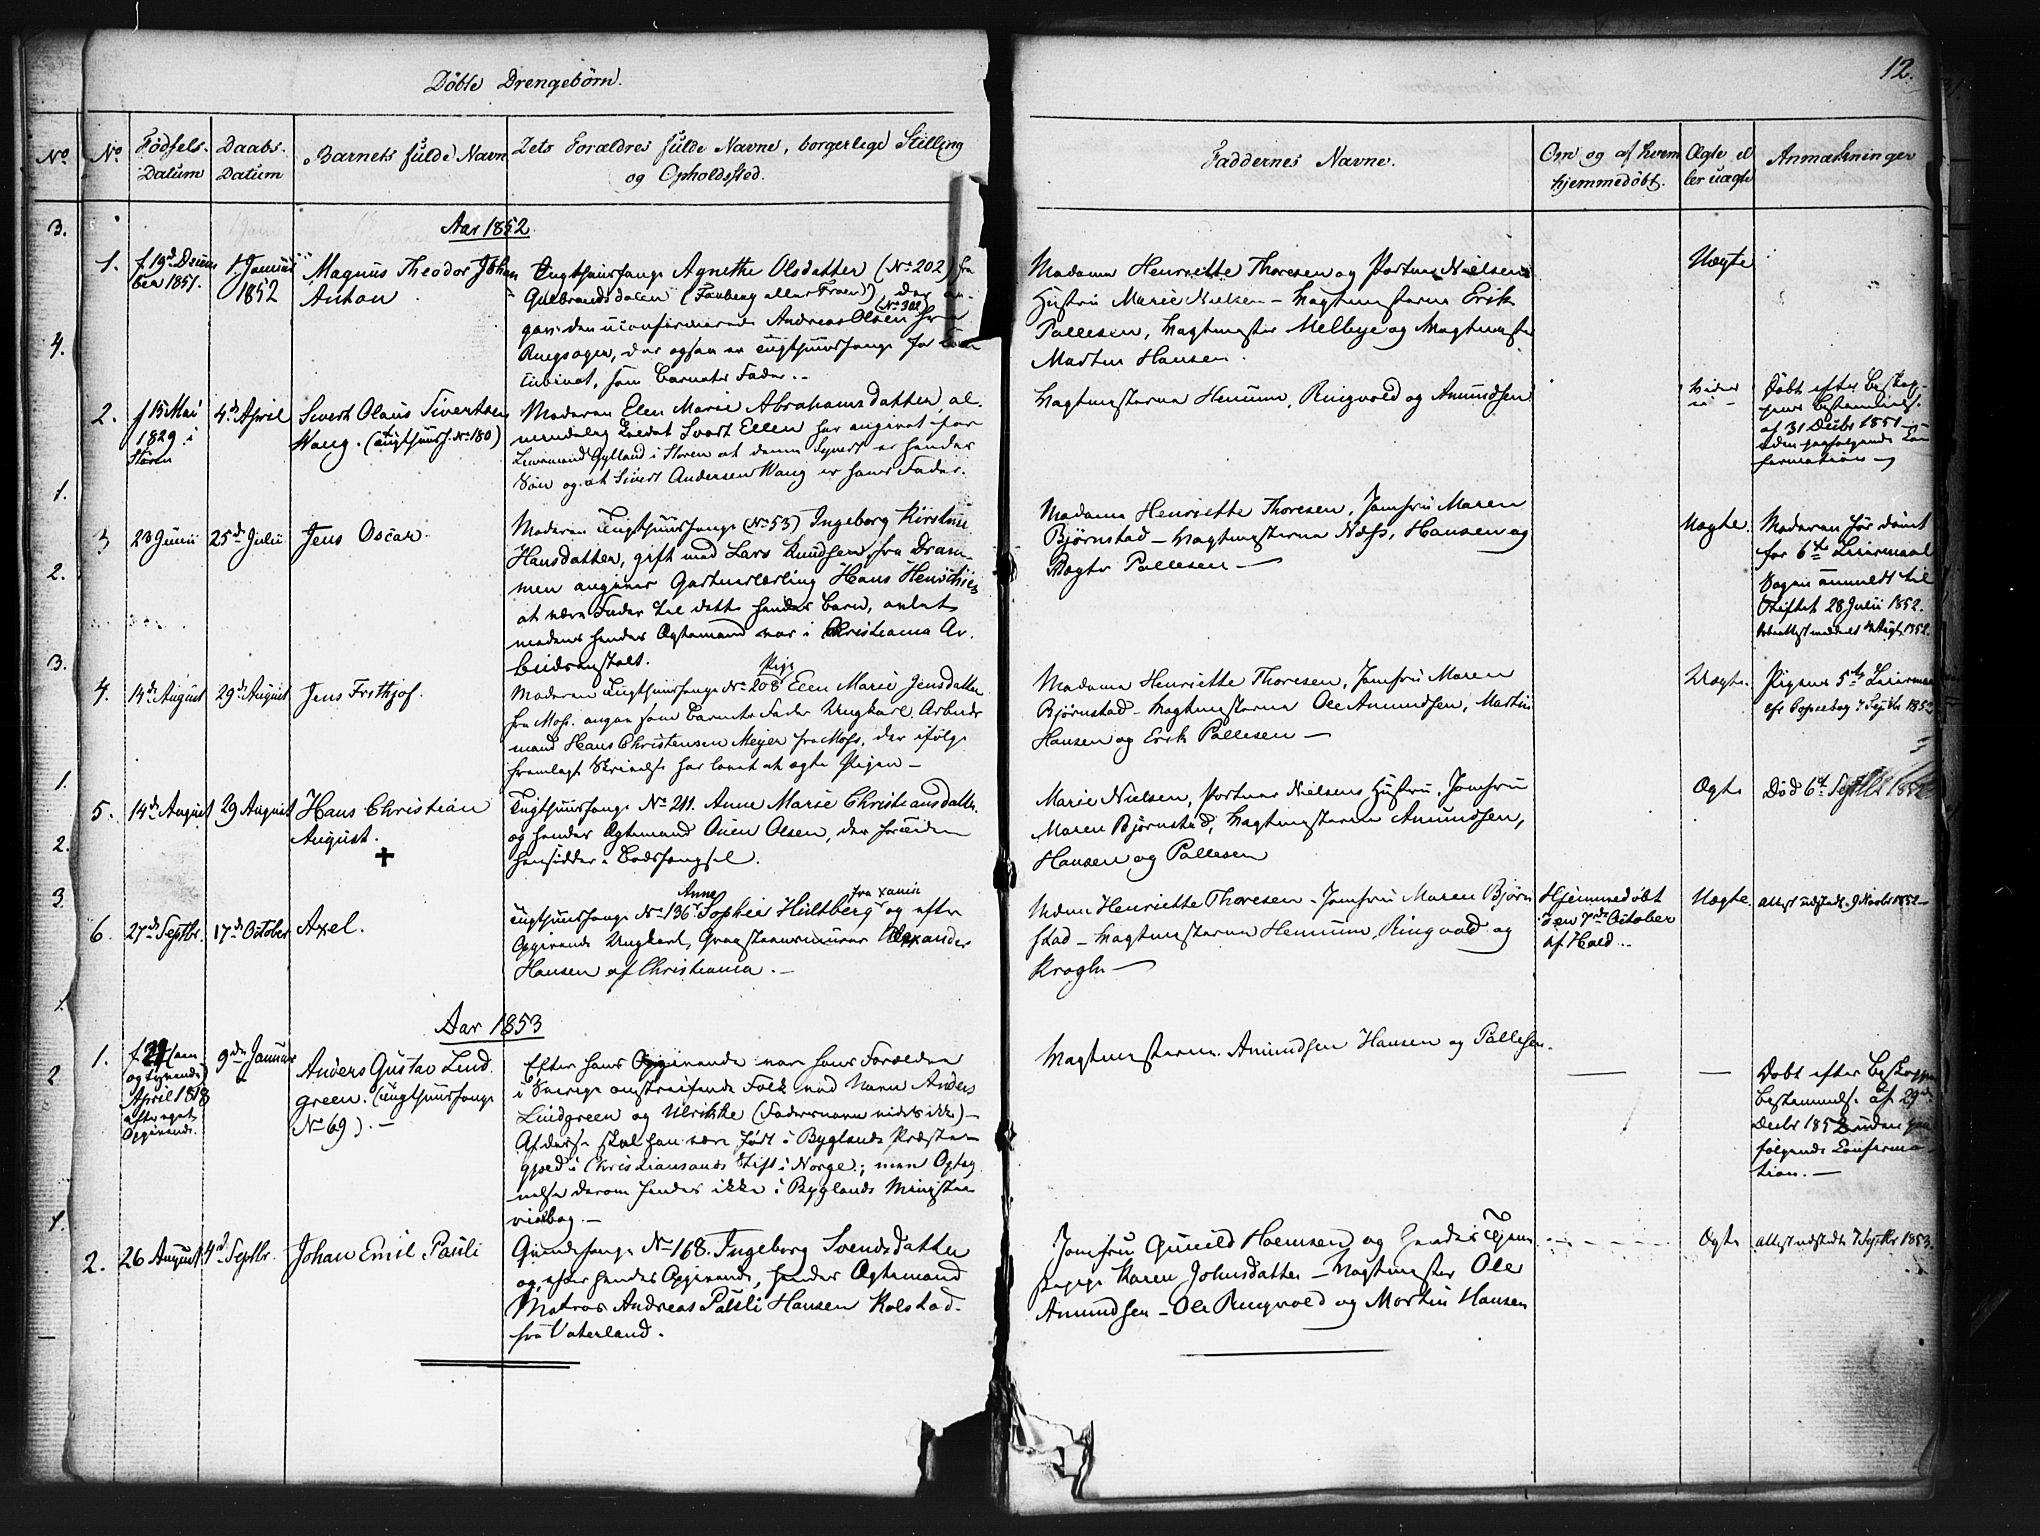 Døbte Drengebørn.
12.
No
No
Fødsels-
Datum
Daabs-
Datum
Barnets fulde Navn
Dets Forældres fulde Navne, borgerlege Stilling
og Opholdssted.
Faddernes Navne.
Om og af hvem
hjemmedøbt.
Ægte el
ler uægte
Anmærkninger
3.
4.
1.
2.
3.
1.
2.
3
1.
2
1.
Aar 1852
1.
f 19de Decem
ber 1851.
1. Januar
1852
Magnus Theodor Johan
Anton
Tugthuusfange Agnethe Olsdatter (No 202) fra
Gulbrandsdalen (Faaberg eller Froen) der an-
gav den uconfirmerede Andreas Olsen (No 302) fra
Ringsager, der ogsaa er Tugthuusfange for
som Barnets Fader.
Madame Henriette Thoresen og Portner Nielsens
Hustru Marie Nielsen – Vagtmesterne Erik
Pallesen, Vagtmester Melbye og Vagtmester
Martin Hansen.
Uægte
2.
f 15 Mai
1829 i
Støren
4de April
Sivert Olaus Sivertsen
Wang. (Tugthuusf. No 180)
Moderen Elen Marie Abrahamsdatter, al-
mindelig kaldet Svart Ellen har angivet for
Lensmand Gylland i Støren at denne Syvert er hendes
Søn og at Sivert Andersen Wang er hans Fader.
Vagtmesterne Hemum, Ringvold og Amundsen
Døbt efter Biskop-
pens Bestemmelse
af 31 Decbr 1851
uden paafølgende Con-
firmation
3
23 Junii
25de Julii
Jens Oscar.
Moderen Tugthuusfange (No 53) Ingeborg Kirstine
Hansdatter, gift med Lars Knudsen fra Dram-
men angiver Gartnerlærling Hans Henrichsen
at være Fader til dette hendes Barn, avlet
medens hendes Ægtemand var i Christiania Ar-
beidsanstalt.
Madame Henriette Thoresen, Jomfru Maren
Bjørnstad – Vagtmesterne Næss, Hansen og
Vagtm Pallesen –
Uægte.
Moderen før dømt
for 6te Leiermaal
Sagen anmeldt til
Stiftet 28 Julii 1852.
4.
14de August
29de August
Jens Frithjof.
Moderen Tugthuusfange No 208 Pige Elen Marie Jensdatter
fra Moss. angav som Barnets Fader Ungkarl Arbeids-
mand Hans Christensen Meyer fra Moss, der ifølge
fremlagt Skrivelse har lovet at ægte Pigen –
Madame Henriette Thoresen, Jomfru Maren
Bjørnstad – Vagtmesterne Ole Amundsen, Martin
Hansen og Erik Pallesen –
Uægte.
Pigens 5te Leiermaal
cfr Copiebog 7 Septbr 1852
5.
14de August
29 August
Hans Christian
August.
Tugthuusfange No 211. Anne Marie Christiansdatter
og hendes Ægtemand Ouen Olsen, der
hensidder i Bodsfængsel.
Marie Nielsen, Portner Nielsens Hustru, Jomfru
Maren Bjørnstad, Vagtmesterne Amundsen,
Hansen og Pallesen
Ægte
Død 6te Septbr 1852
6.
27de Septbr.
17de October
Axel.
Tugthuusfange No 136 Anne Sophie Hultberg fra Xania og efter
Opgivende Ungkarl, Graasteensmurer Alexander
Hansen af Christiania. –
Mdme Henriette Thoresen – Jomfru Maren Bjørn
stad – Vagtmesterne Hemum, Ringvold og
Krogh –
Hjemmedøbt
den 7de October
af Hald
Uægte
Attest udstedt 9 Novbr 1852
Aar 1853
1.
f 21 (een
og tyvende)
April 1818
efter eget
Opgivende.
9de Januar
Anders Gustav Lind
green. (Tugthuusfange
No 69). –
Efter hans Opgivende var hans Forældre
i Sverige omstreifende Folk ved Navn Anders
Lindgreen og Ulrikke (Fadernavn vides ikke) –
skal han være født i Byglands Præste-
gjeld i Christiansands Stift i Norge; men Opteg-
nelse derom findes ikke i Byglands Ministe-
rialbog. –
Vagtmesterne Amundsen Hansen og Pallesen.
Døbt efter Biskoppens
Bestemmelse af 29de
Decbr 1852 uden paa
følgende Confirma-
tion. –
2.
26 August
4de Septbr.
Johan Emil Pauli
Qvindefange No 168. Ingeborg Svendsdatter
og efter hendes Opgivende, hendes Ægtemand
Matros Andreas Pauli Hansen Kolstad
fra Vaterland.
Jomfru Gunild Hoemsen og hendes Tjene
stepige Karen Johnsdatter – Vagtmester Ole
Amundsen – Ole Ringvold og Martin Hansen
Ægte
Attest udstedt 7 Septbr 1853.